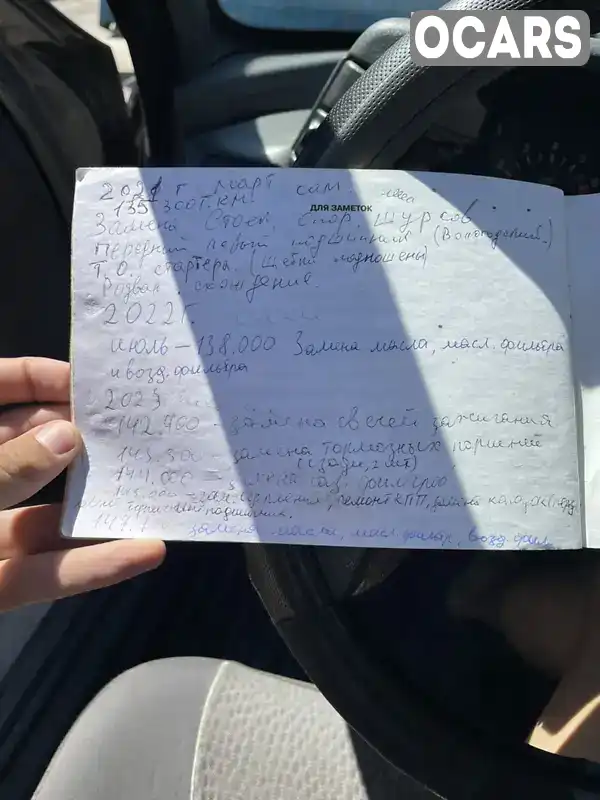 OCARS
2021 г март сам.
135 300 т.км.
ДЛЯ ЗАМЕТОК
Замена Стоек Спор, ШУРСов
Передний левый подшипник (Вологодский.)
Т.О. стартера. (Щетки изношены)
Розвал схождение.
2022 г.
июль – 138.000 Замена масла, масл. фильтра
и возд. фильтра
2023
142.960 – замена свечей зажигания
143.300 – замена тормозных поршней
(сзади, 2 шт)
144.000 – газ. фильтров
145.000 – зам. сцепления, ремонт КПП,
подшипника.
147.7 замена масла, масл. фильтр, возд. фил.